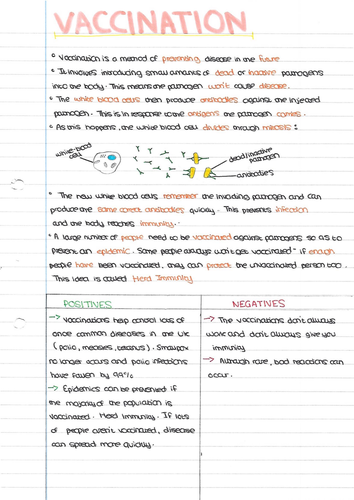 VACCINATION
° Vaccination is a method of preventing disease in the future
° It involves introducing small amounts of dead or inactive pathogens
into the body. This means the pathogen won't cause disease.
° The white blood cells then produce antibodies against the injected
pathogen. This is in response to the antigens the pathogen carries.
° As this happens, the white blood cell divides through mitosis:
white blood cell
dead/inactive
pathogen
antibodies
° The new white blood cells remember the invading pathogen and can
produce the same correct antibodies quickly. This prevents infection
and the body reaches immunity.
° A large number of people need to be vaccinated against pathogens so as to
prevent an epidemic. Some people always won't get vaccinated - if enough
people have been vaccinated, they can protect the unvaccinated person too.
This idea is called Herd Immunity
POSITIVES
→ Vaccinations help control lots of
once common diseases in the UK
(polio, measles, tetanus). Smallpox
no longer occurs and polio infections
have fallen by 99%
→ Epidemics can be prevented if
the majority of the population is
vaccinated. Herd Immunity. If lots
of people aren't vaccinated, disease
can spread more quickly.
NEGATIVES
→ The vaccinations don't always
work and don't always give you
immunity
→ Although rare, bad reactions can
occur.